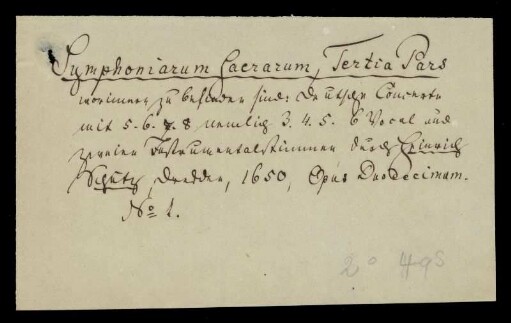 Symphoniarum Sacrarum, Tertia Pars
worinnen zu befinden sind: Deutsche Concerte
mit 5. 6. 7. 8 nemlich 3. 4. 5. 6 Vocal und
zweien Instrumentalstimmen durch Heinrich
Schütz, Dresden, 1650, Opus Duodecimum.
No 1.
2° 49s